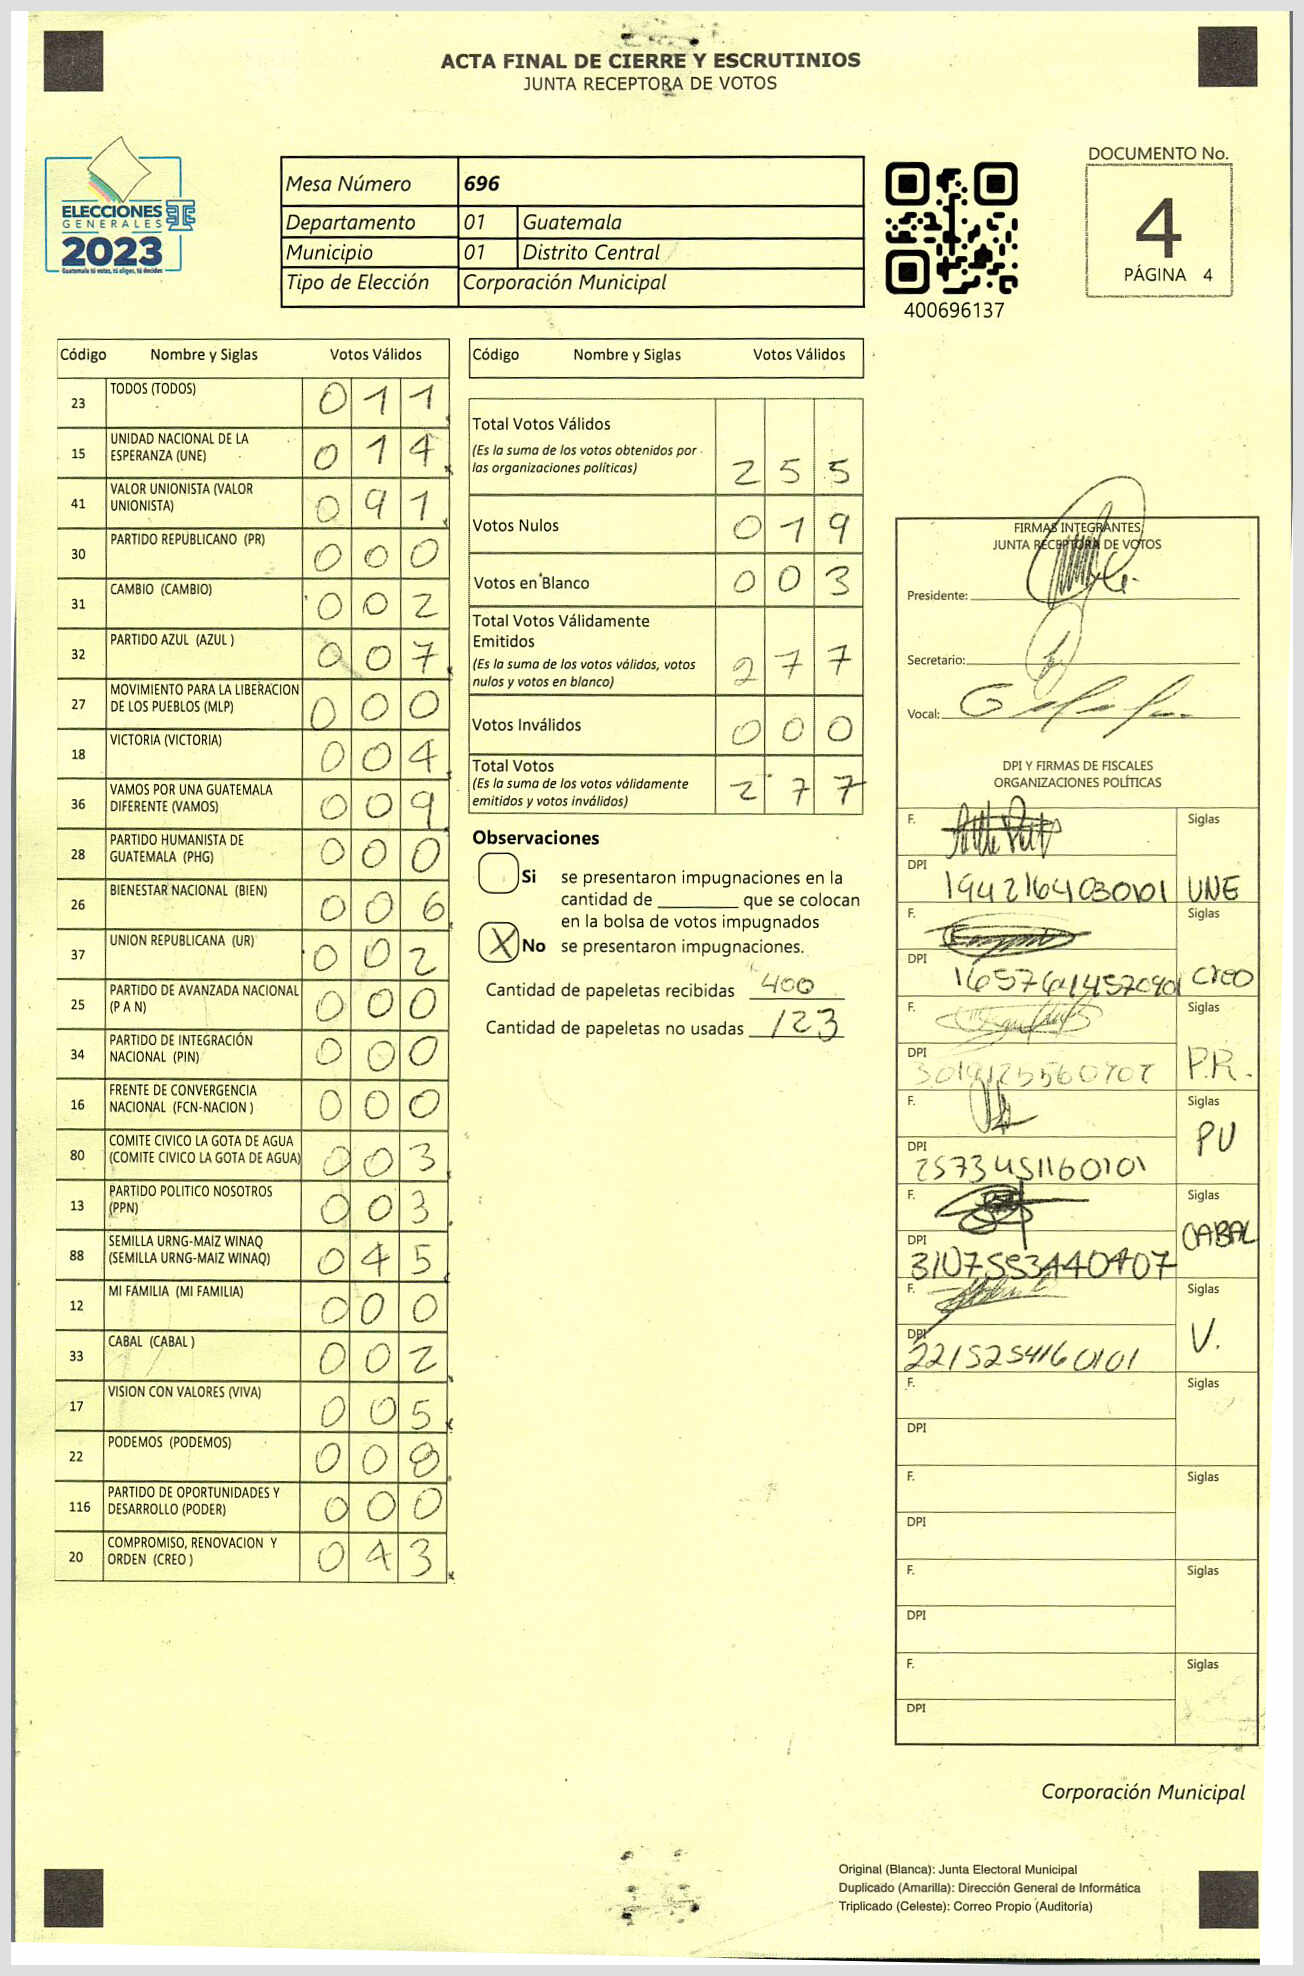 ACTA FINAL DE CIERRE Y ESCRUTINIOS
JUNTA RECEPTORA DE VOTOS
ELECCIONES
GENERALES
2023
Guatemala tú votas, tú eliges, tú decides
Mesa Número 696
Departamento 01 Guatemala
Municipio 01 Distrito Central
Tipo de Elección Corporación Municipal
400696137
DOCUMENTO No.
4
PÁGINA 4
Código Nombre y Siglas Votos Válidos
23 TODOS (TODOS) 0 1 1
15 UNIDAD NACIONAL DE LA
ESPERANZA (UNE) 0 1 4
41 VALOR UNIONISTA (VALOR
UNIONISTA) 0 9 1
30 PARTIDO REPUBLICANO (PR) 0 0 0
31 CAMBIO (CAMBIO) 0 0 2
32 PARTIDO AZUL (AZUL ) 0 0 7
27 MOVIMIENTO PARA LA LIBERACION
DE LOS PUEBLOS (MLP) 0 0 0
18 VICTORIA (VICTORIA) 0 0 4
36 VAMOS POR UNA GUATEMALA
DIFERENTE (VAMOS) 0 0 9
28 PARTIDO HUMANISTA DE
GUATEMALA (PHG) 0 0 0
26 BIENESTAR NACIONAL (BIEN) 0 0 6
37 UNION REPUBLICANA (UR) 0 0 2
25 PARTIDO DE AVANZADA NACIONAL
(P A N) 0 0 0
34 PARTIDO DE INTEGRACIÓN
NACIONAL (PIN) 0 0 0
16 FRENTE DE CONVERGENCIA
NACIONAL (FCN-NACION ) 0 0 0
80 COMITE CIVICO LA GOTA DE AGUA
(COMITE CIVICO LA GOTA DE AGUA) 0 0 3
13 PARTIDO POLITICO NOSOTROS
(PPN) 0 0 3
88 SEMILLA URNG-MAIZ WINAQ
(SEMILLA URNG-MAIZ WINAQ) 0 4 5
12 MI FAMILIA (MI FAMILIA) 0 0 0
33 CABAL (CABAL ) 0 0 2
17 VISION CON VALORES (VIVA) 0 0 5
22 PODEMOS (PODEMOS) 0 0 8
116 PARTIDO DE OPORTUNIDADES Y
DESARROLLO (PODER) 0 0 0
20 COMPROMISO, RENOVACION Y
ORDEN (CREO ) 0 4 3
Código Nombre y Siglas Votos Válidos
Total Votos Válidos
(Es la suma de los votos obtenidos por
las organizaciones políticas) 2 5 5
Votos Nulos 0 1 9
Votos en Blanco 0 0 3
Total Votos Válidamente
Emitidos
(Es la suma de los votos válidos, votos
nulos y votos en blanco) 2 7 7
Votos Inválidos 0 0 0
Total Votos
(Es la suma de los votos válidamente
emitidos y votos inválidos) 2 7 7
Observaciones
Si se presentaron impugnaciones en la
cantidad de ________ que se colocan
en la bolsa de votos impugnados
X No se presentaron impugnaciones.
Cantidad de papeletas recibidas 400
Cantidad de papeletas no usadas 123
FIRMAS INTEGRANTES
JUNTA RECEPTORA DE VOTOS
Presidente:
Secretario:
Vocal:
DPI Y FIRMAS DE FISCALES
ORGANIZACIONES POLÍTICAS
F. Siglas
DPI
1942164030101 UNE
F. Siglas
DPI
CREO
F. Siglas
DPI
P.R.
F. Siglas
DPI PU
2573451160101
F. Siglas
DPI CABAL
F. Siglas
DPI V.
2215254160101
F. Siglas
DPI
F. Siglas
DPI
F. Siglas
DPI
F. Siglas
DPI
Corporación Municipal
Original (Blanca): Junta Electoral Municipal
Duplicado (Amarilla): Dirección General de Informática
Triplicado (Celeste): Correo Propio (Auditoría)